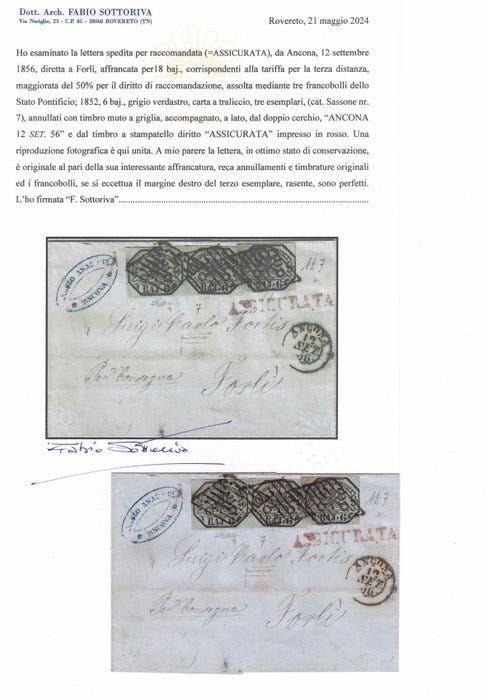 Dott. Arch. FABIO SOTTORIVA
Via Noriglio, 23 - C.P. 85 - 38068 ROVERETO (TN)
Rovereto, 21 maggio 2024
Ho esaminato la lettera spedita per raccomandata (=ASSICURATA), da Ancona, 12 settembre
1856, diretta a Forlì, affrancata per18 baj., corrispondenti alla tariffa per la terza distanza,
maggiorata del 50% per il diritto di raccomandazione, assolta mediante tre francobolli dello
Stato Pontificio; 1852, 6 baj., grigio verdastro, carta a traliccio, tre esemplari, (cat. Sassone nr.
7), annullati con timbro muto a griglia, accompagnato, a lato, dal doppio cerchio, “ANCONA
12 SET. 56” e dal timbro a stampatello diritto “ASSICURATA” impresso in rosso. Una
riproduzione fotografica è qui unita. A mio parere la lettera, in ottimo stato di conservazione,
è originale al pari della sua interessante affrancatura, reca annullamenti e timbrature originali
ed i francobolli, se si eccettua il margine destro del terzo esemplare, rasente, sono perfetti.
L’ho firmata “F. Sottoriva”
BAJ. 6
BAJ. 6
BAJ. 6
ANCONA
7
ASSICURATA
Luigi Carlo Fortis
ANCONA
12
SET.
56
Per Consegna
Forlì
Fabio Sottoriva
BAJ. 6
BAJ. 6
BAJ. 6
ANCONA
7
ASSICURATA
Luigi Carlo Fortis
ANCONA
12
SET.
56
Per Consegna
Forlì